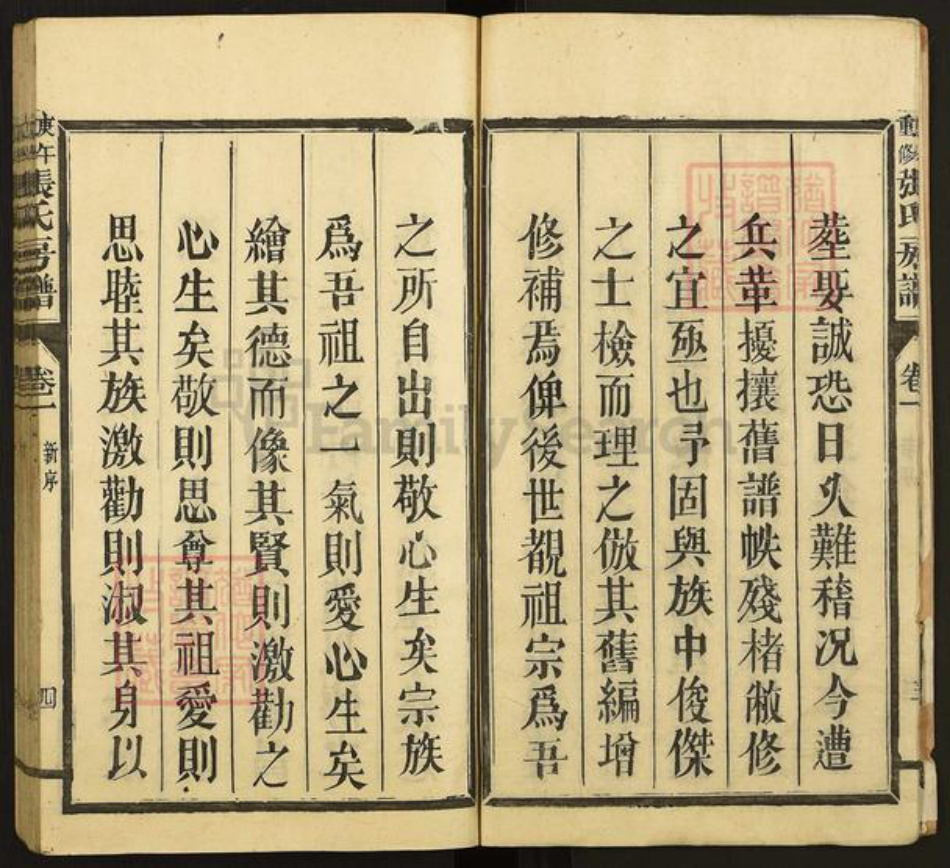 重修張氏族譜 卷一 三
塟娶誠恐日乆難稽况今遭
兵革擾攘舊譜帙殘楮敝修
之宜亟也予固與族中俊傑
之士檢而理之倣其舊編增
修補焉俾後世覩祖宗爲吾
之所自出則敬心生矣宗族
爲吾祖之一氣則愛心生矣
繪其德而像其賢則激勸之
心生矣敬則思尊其祖愛則
思睦其族激勸則淑其身以
庚午張氏房譜 卷一 新序 四
FamilySearch